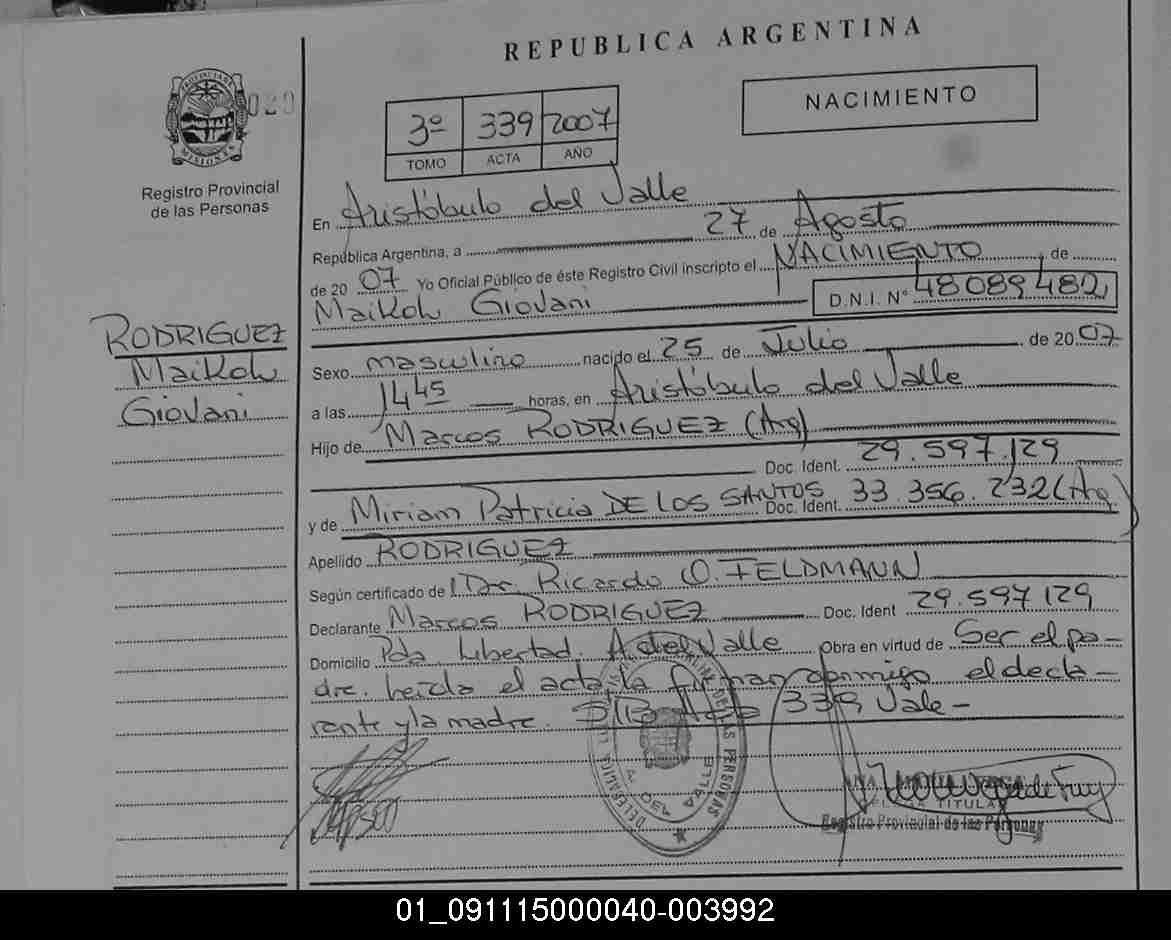 REPUBLICA ARGENTINA
PROVINCIA DE
MISIONES
020
Registro Provincial
de las Personas
3º 339 2007
TOMO ACTA AÑO
NACIMIENTO
En Aristóbulo del Valle
República Argentina, a 27 de Agosto
de 20 07 Yo Oficial Público de éste Registro Civil inscripto el NACIMIENTO, de
Maikol Giovani D.N.I. Nº 48089482
RODRIGUEZ
Maikol
Giovani
Sexo masculino nacido el 25 de Julio de 20 07
a las 14 45 horas, en Aristóbulo del Valle
Hijo de Marcos RODRIGUEZ (Arg)
Doc. Ident. 29.597.129
y de Miriam Patricia DE LOS SANTOS Doc. Ident. 33.356.232 (Arg)
Apellido RODRIGUEZ
Según certificado de Dr. Ricardo O. FELDMANN
Declarante Marcos RODRIGUEZ Doc. Ident 29.597 129
Domicilio Pda Libertad. A. del Valle Obra en virtud de Ser el pa-
dre. Leída el acta, la firman conmigo el decla-
rante y la madre. 339 Vale-
DE LAS PERSONAS
DELEGACION
VALLE
TITULAR
Registro Provincial de las Personas
01_091115000040-003992